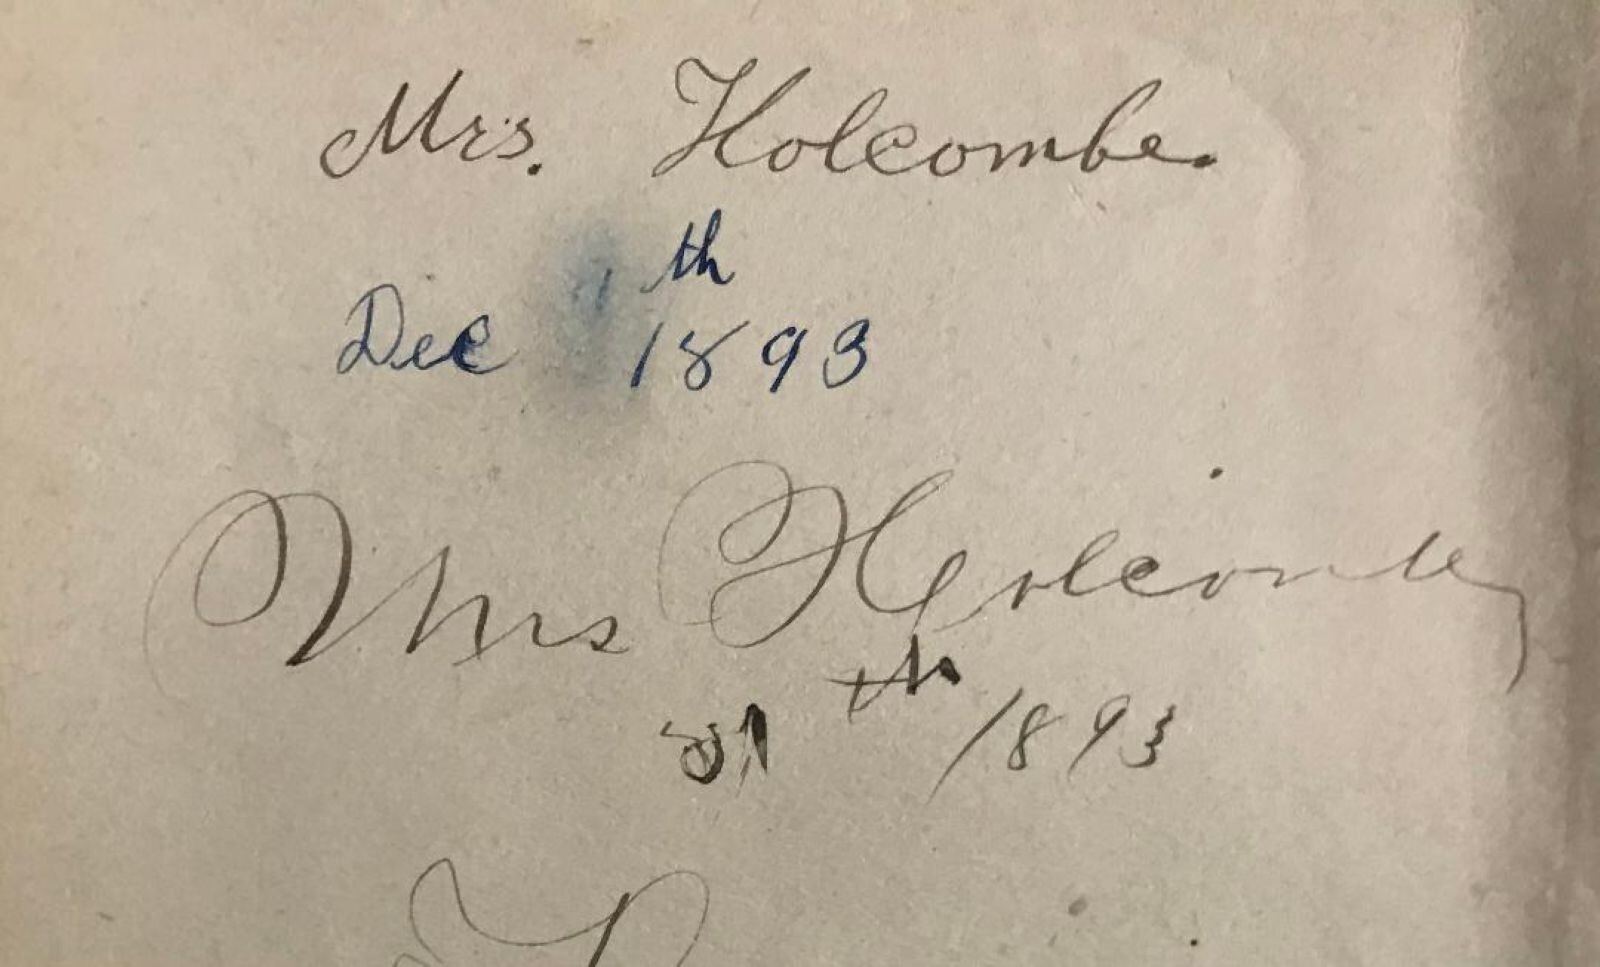 Mrs. Holcombe.
Dec th 1893
Mrs Holcombe
31 th 1893